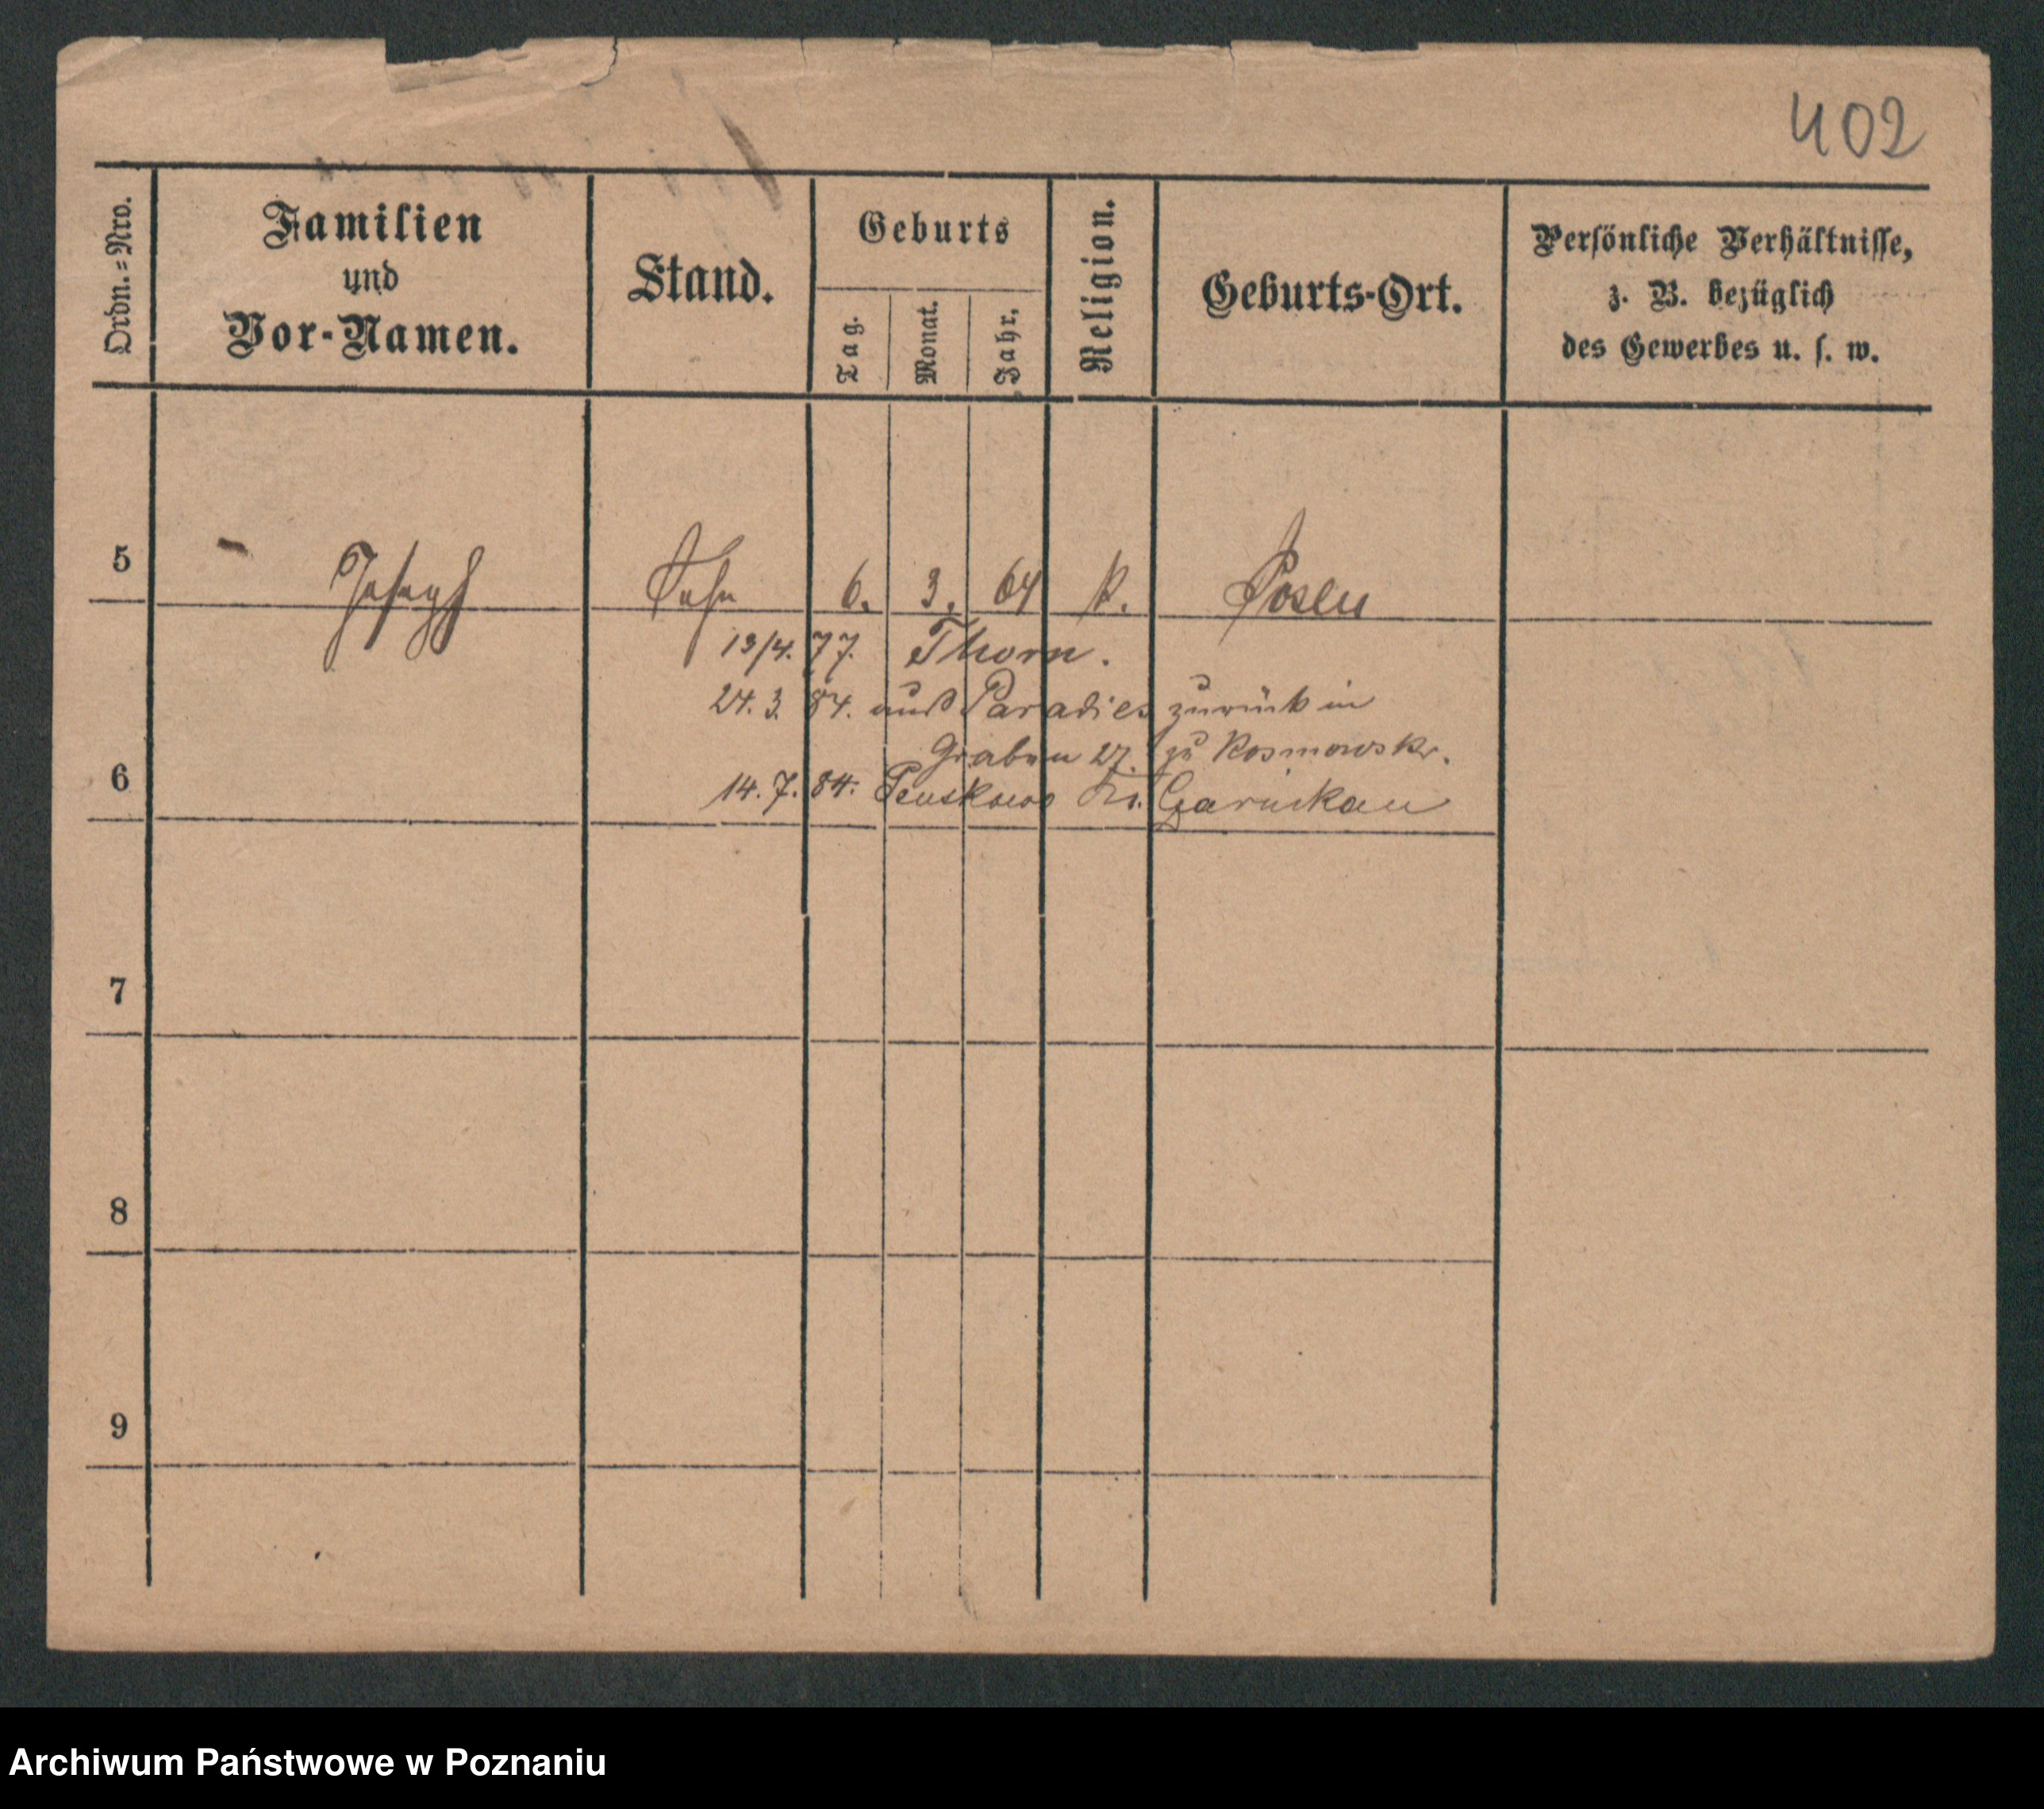 402
Ordn.=Nro.
Familien
und
Vor-Namen.
Stand.
Geburts
Tag.
Monat.
Jahr.
Religion.
Geburts-Ort.
Persönliche Verhältnisse,
z. B. bezüglich
des Gewerbes u. s. w.
5 Joseph Sohn 6. 3. 64 k. Posen
13/4. 77. Thorn.
24. 3. 84. aus Paradies zurück in
Graben 27. zu
6
14. 7. 84. Kr. Czarnikau
7
8
9
Archiwum Państwowe w Poznaniu